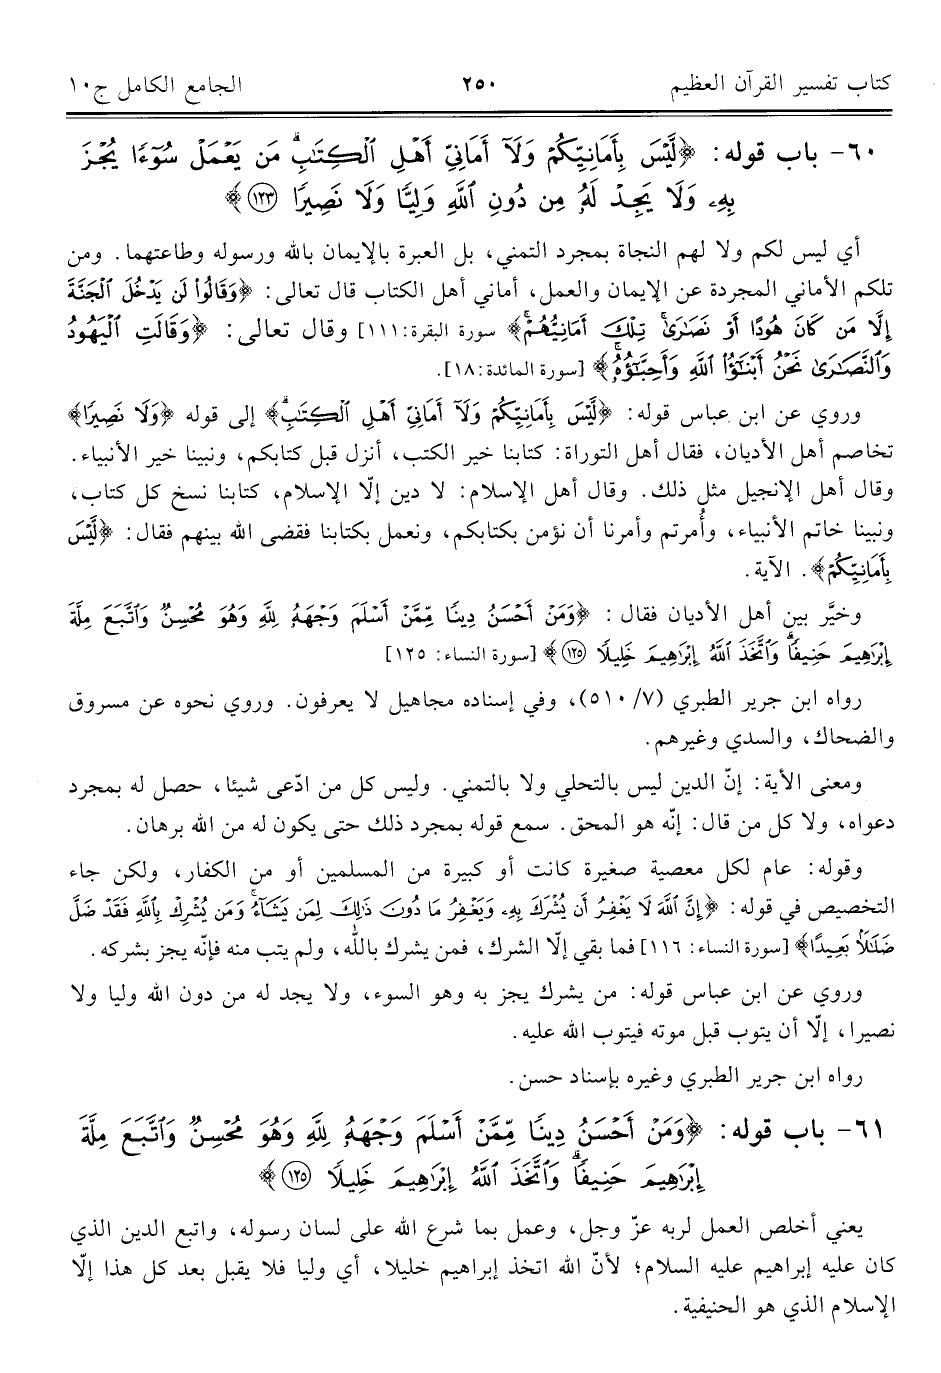 كتاب تفسير القرآن العظيم ٢٥٠ الجامع الكامل ج١٠
٦٠- باب قوله: ﴿لَّيْسَ بِأَمَانِيِّكُمْ وَلَآ أَمَانِيِّ أَهْلِ ٱلْكِتَٰبِۗ مَن يَعْمَلْ سُوٓءًا يُجْزَ
بِهِۦ وَلَا يَجِدْ لَهُۥ مِن دُونِ ٱللَّهِ وَلِيًّا وَلَا نَصِيرًا ١٢٣﴾
أي ليس لكم ولا لهم النجاة بمجرد التمني، بل العبرة بالإيمان بالله ورسوله وطاعتهما. ومن
تلكم الأماني المجردة عن الإيمان والعمل، أماني أهل الكتاب قال تعالى: ﴿وَقَالُوا۟ لَن يَدْخُلَ ٱلْجَنَّةَ
إِلَّا مَن كَانَ هُودًا أَوْ نَصَٰرَىٰۗ تِلْكَ أَمَانِيُّهُمْۗ﴾ سورة البقرة:١١١] وقال تعالى: ﴿وَقَالَتِ ٱلْيَهُودُ
وَٱلنَّصَٰرَىٰ نَحْنُ أَبْنَٰٓؤُا۟ ٱللَّهِ وَأَحِبَّٰٓؤُهُۥۚ﴾ [سورة المائدة:١٨].
وروي عن ابن عباس قوله: ﴿لَّيْسَ بِأَمَانِيِّكُمْ وَلَآ أَمَانِيِّ أَهْلِ ٱلْكِتَٰبِۗ﴾ إلى قوله ﴿وَلَا نَصِيرًا﴾
تخاصم أهل الأديان، فقال أهل التوراة: كتابنا خير الكتب، أنزل قبل كتابكم، ونبينا خير الأنبياء.
وقال أهل الإنجيل مثل ذلك. وقال أهل الإسلام: لا دين إلّا الإسلام، كتابنا نسخ كل كتاب،
ونبينا خاتم الأنبياء، وأُمرتم وأمرنا أن نؤمن بكتابكم، ونعمل بكتابنا فقضى الله بينهم فقال: ﴿لَّيْسَ
بِأَمَانِيِّكُمْ﴾. الآية.
وخيَّر بين أهل الأديان فقال: ﴿وَمَنْ أَحْسَنُ دِينًا مِّمَّنْ أَسْلَمَ وَجْهَهُۥ لِلَّهِ وَهُوَ مُحْسِنٌ وَٱتَّبَعَ مِلَّةَ
إِبْرَٰهِيمَ حَنِيفًاۗ وَٱتَّخَذَ ٱللَّهُ إِبْرَٰهِيمَ خَلِيلًا ١٢٥﴾ [سورة النساء: ١٢٥]
رواه ابن جرير الطبري (٧/ ٥١٠)، وفي إسناده مجاهيل لا يعرفون. وروي نحوه عن مسروق
والضحاك، والسدي وغيرهم.
ومعنى الأية: إنّ الدين ليس بالتحلي ولا بالتمني. وليس كل من ادّعى شيئا، حصل له بمجرد
دعواه، ولا كل من قال: إنّه هو المحق. سمع قوله بمجرد ذلك حتى يكون له من الله برهان.
وقوله: عام لكل معصية صغيرة كانت أو كبيرة من المسلمين أو من الكفار، ولكن جاء
التخصيص في قوله: ﴿إِنَّ ٱللَّهَ لَا يَغْفِرُ أَن يُشْرَكَ بِهِۦ وَيَغْفِرُ مَا دُونَ ذَٰلِكَ لِمَن يَشَآءُۚ وَمَن يُشْرِكْ بِٱللَّهِ فَقَدْ ضَلَّ
ضَلَٰلًۢا بَعِيدًا﴾ [سورة النساء: ١١٦] فما بقي إلّا الشرك، فمن يشرك بالله، ولم يتب منه فإنّه يجز بشركه.
وروي عن ابن عباس قوله: من يشرك يجز به وهو السوء، ولا يجد له من دون الله وليا ولا
نصيرا، إلّا أن يتوب قبل موته فيتوب الله عليه.
رواه ابن جرير الطبري وغيره بإسناد حسن.
٦١- باب قوله: ﴿وَمَنْ أَحْسَنُ دِينًا مِّمَّنْ أَسْلَمَ وَجْهَهُۥ لِلَّهِ وَهُوَ مُحْسِنٌ وَٱتَّبَعَ مِلَّةَ
إِبْرَٰهِيمَ حَنِيفًاۗ وَٱتَّخَذَ ٱللَّهُ إِبْرَٰهِيمَ خَلِيلًا ١٢٥﴾
يعني أخلص العمل لربه عزّ وجل، وعمل بما شرع الله على لسان رسوله، واتبع الدين الذي
كان عليه إبراهيم عليه السلام؛ لأنّ الله اتخذ إبراهيم خليلا، أي وليا فلا يقبل بعد كل هذا إلّا
الإسلام الذي هو الحنيفية.